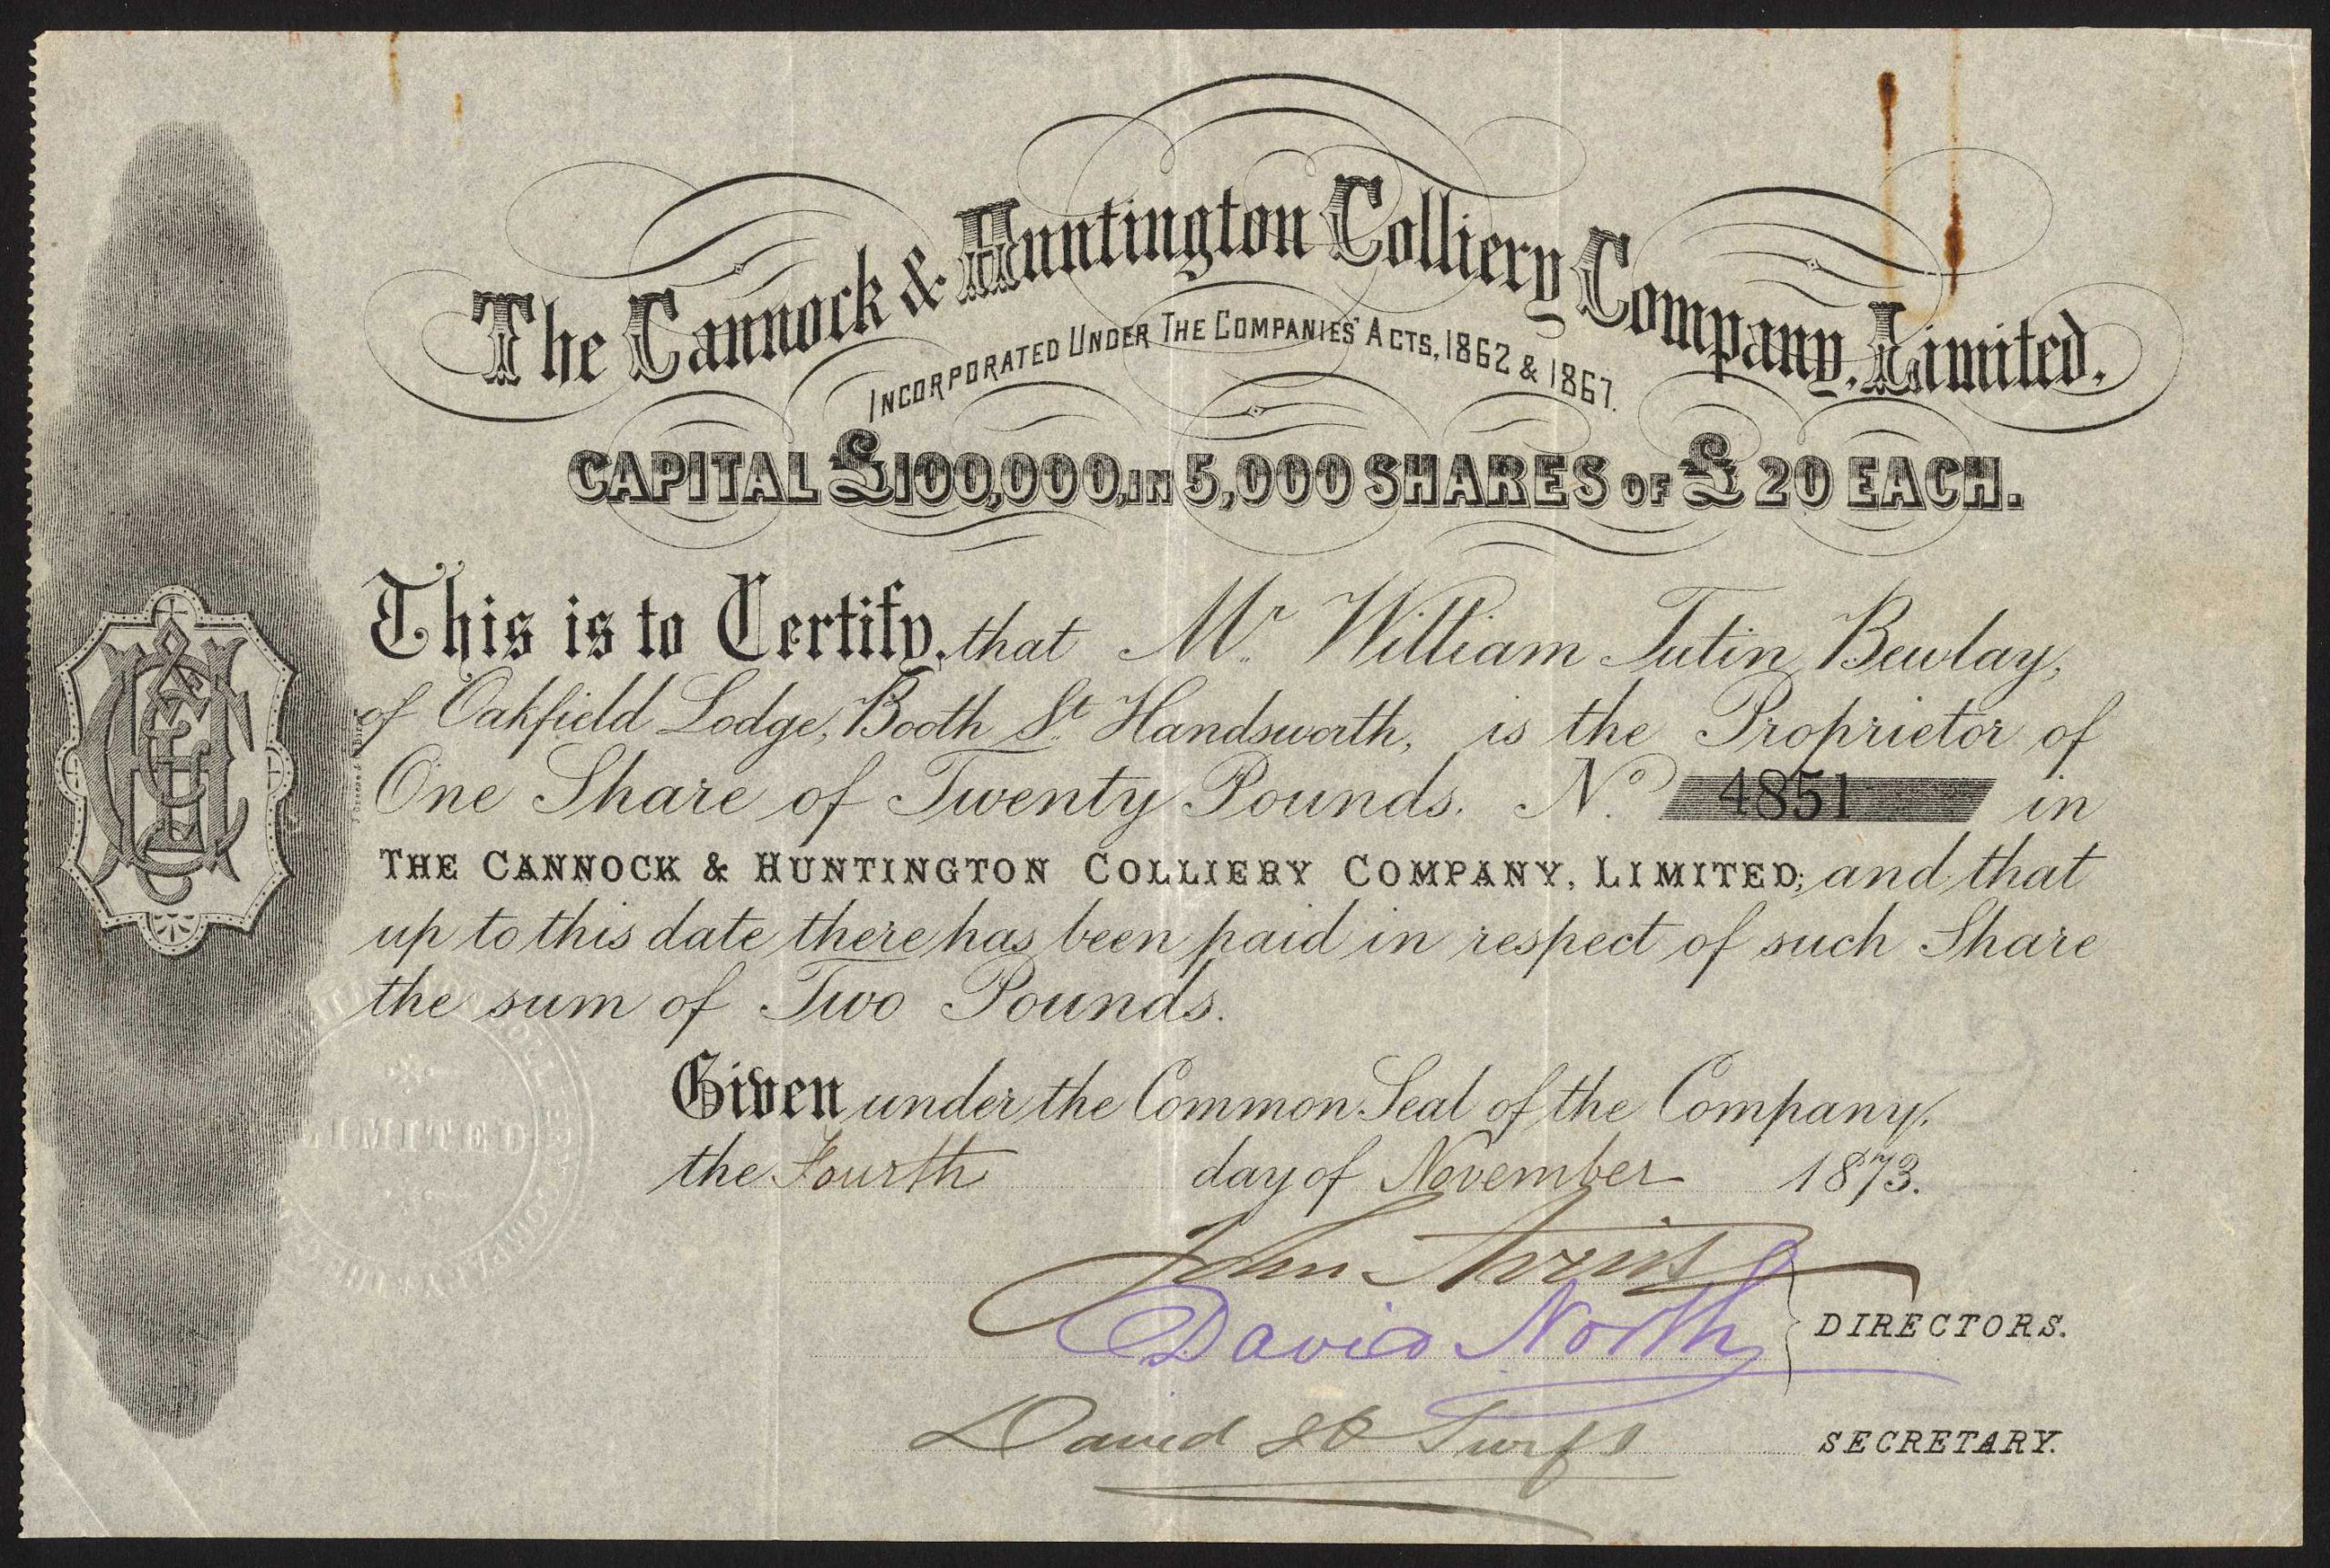 The Cannock & Huntington Colliery Company, Limited.
INCORPORATED UNDER THE COMPANIES' ACTS, 1862 & 1867.
CAPITAL £100,000, IN 5,000 SHARES OF £20 EACH.
This is to Certify, that Mr. William Tutin Bewlay,
of Oakfield Lodge, Booth St. Handsworth, is the Proprietor of
One Share of Twenty Pounds. No. 4851 in
THE CANNOCK & HUNTINGTON COLLIERY COMPANY, LIMITED; and that
up to this date there has been paid in respect of such Share
the sum of Two Pounds.
LIMITED
Given under the Common Seal of the Company,
the Fourth day of November 1873.
John
David North
DIRECTORS.
David
SECRETARY.